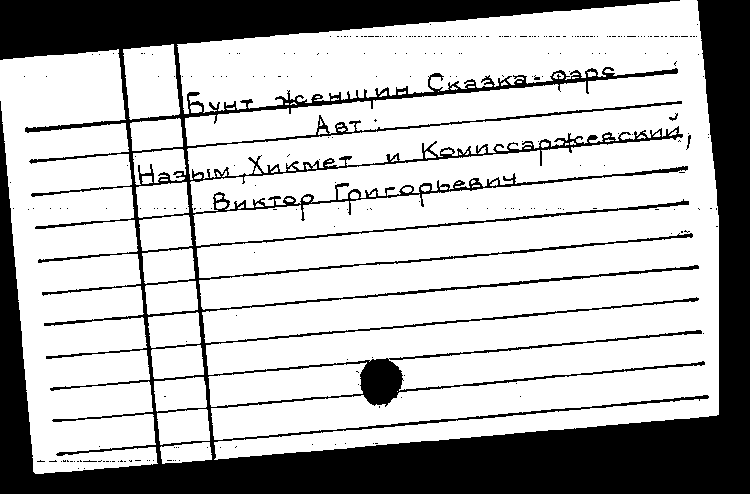 Бунт женщин. Сказка-фарс
Авт.:
Назым, Хикмет и Комиссаржевский,
Виктор Григорьевич